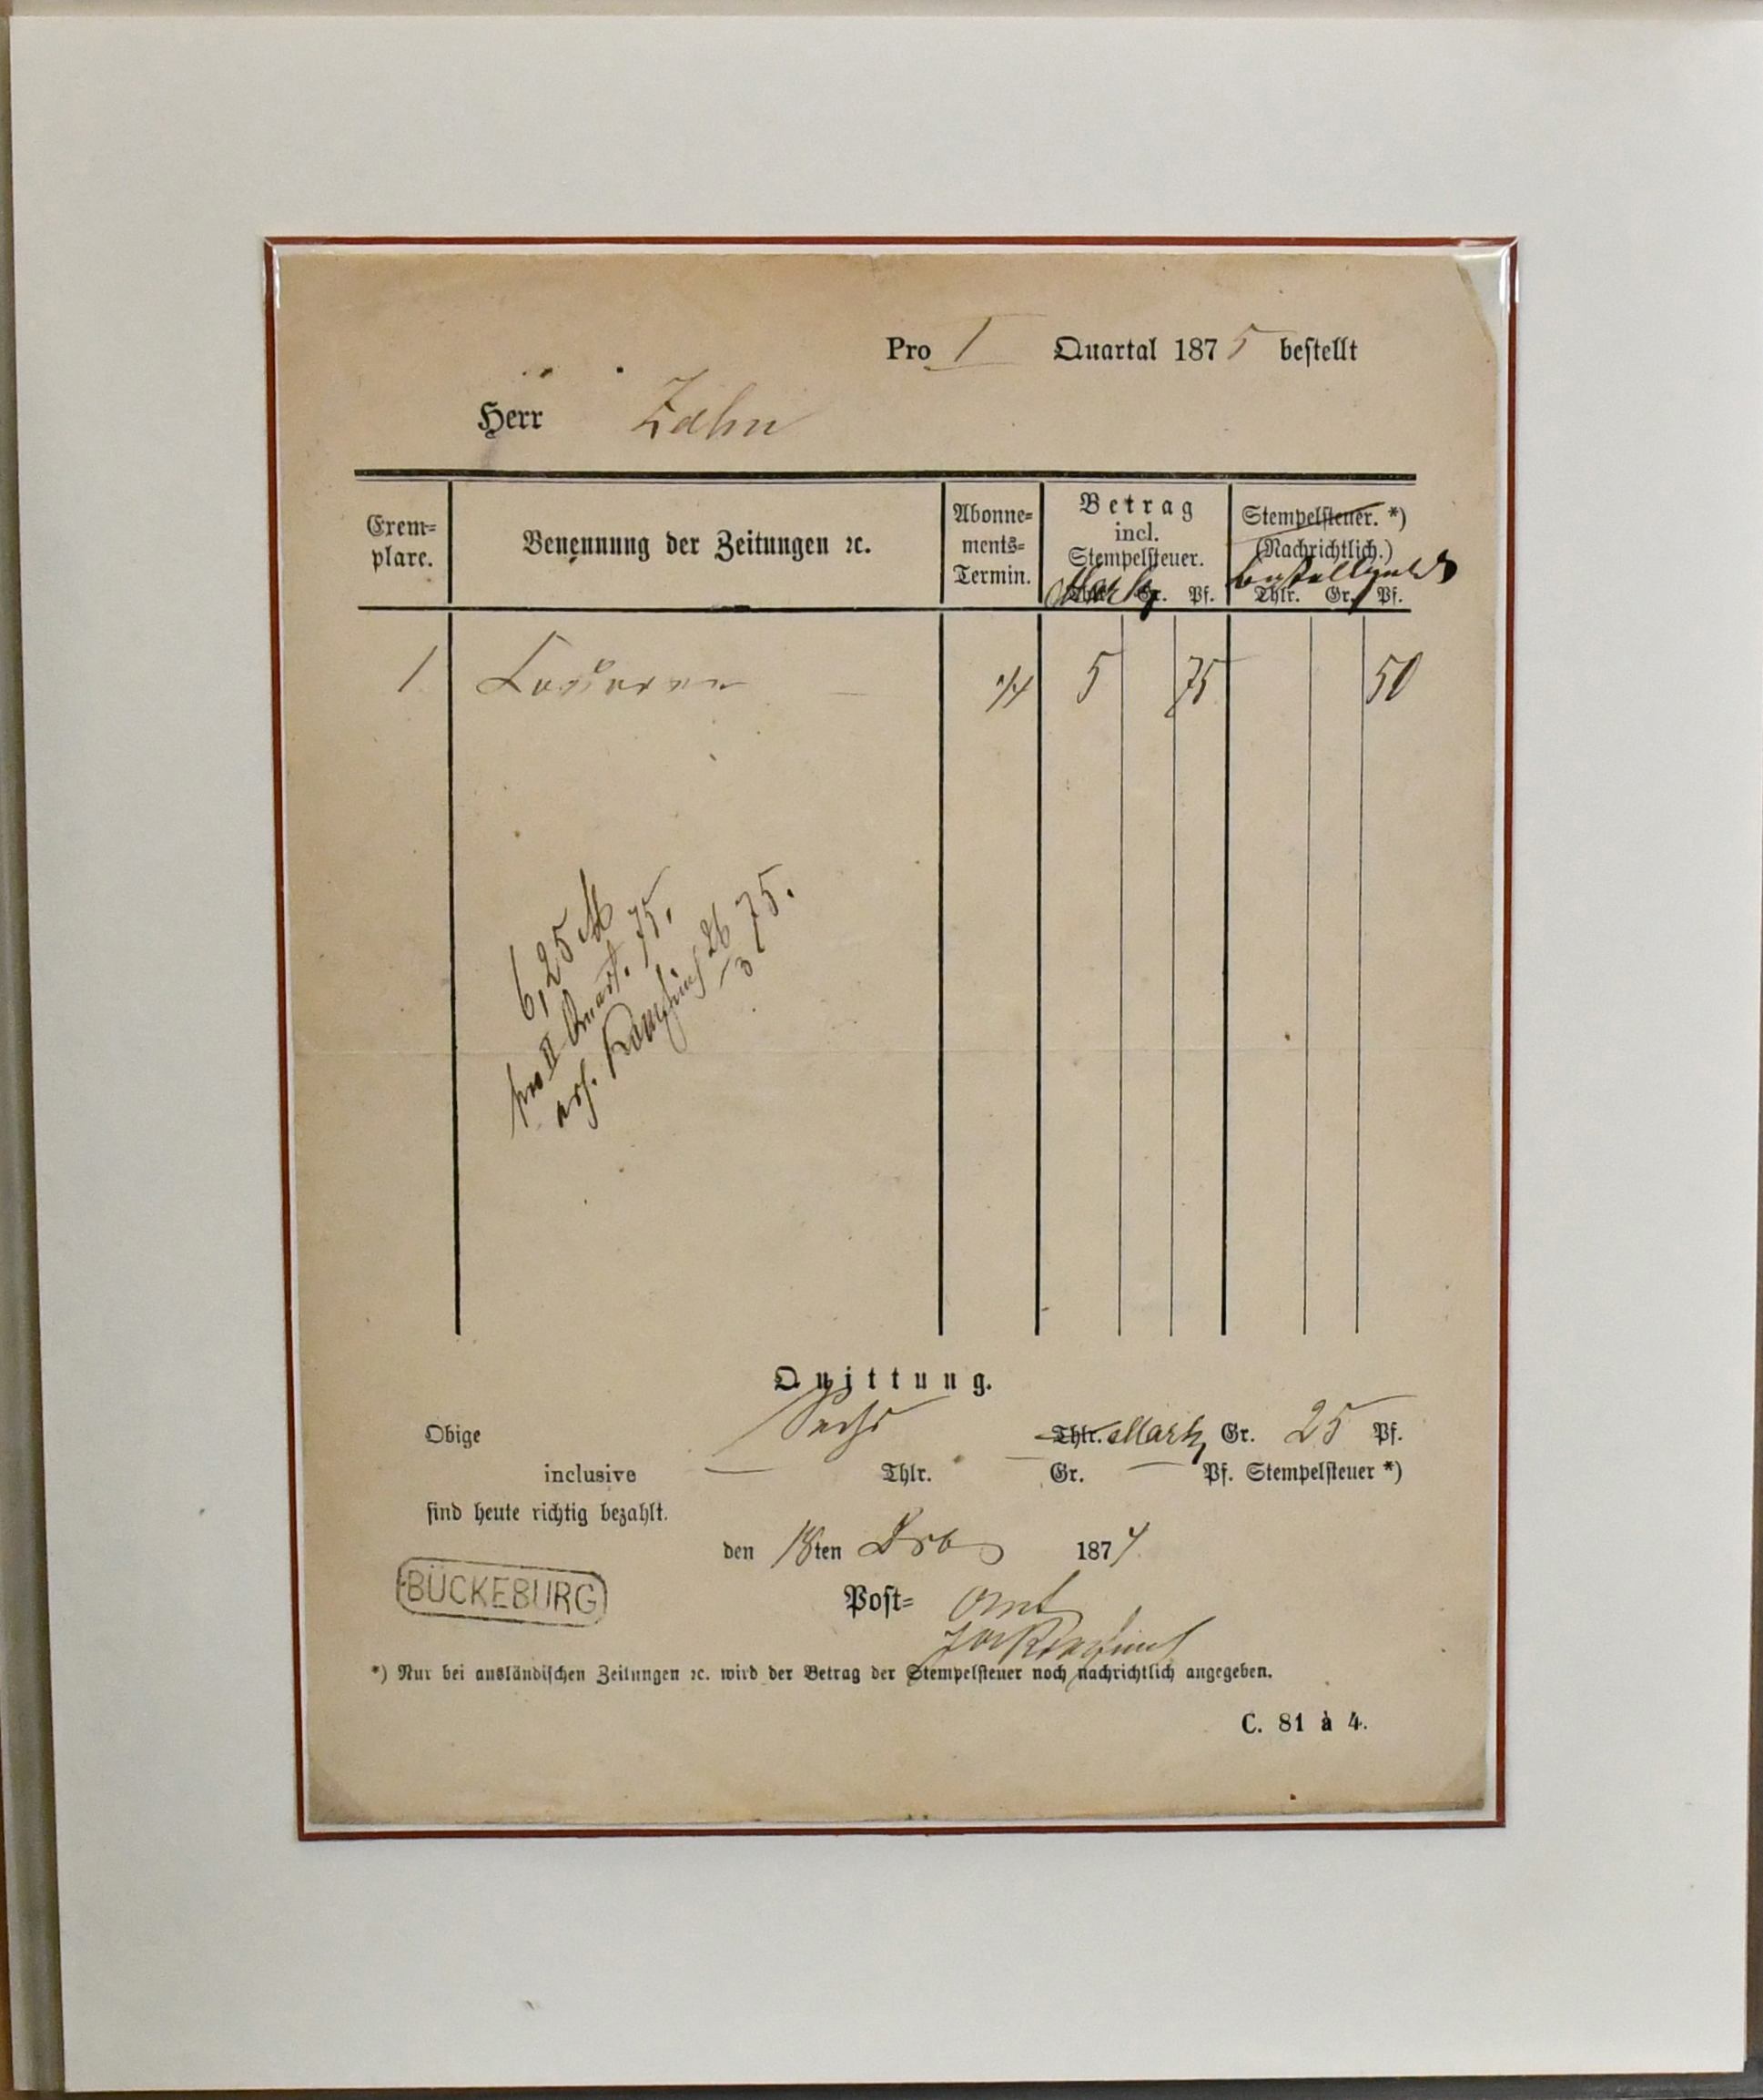 Pro I Quartal 1875 bestellt
Herr Zahn
Exem-
plare.
Benennung der Zeitungen ꝛc.
Abonne-
ments-
Termin.
Betrag
incl.
Stempelsteuer.
Mark Gr. Pf.
Stempelsteuer. *)
(Nachrichtlich.)
Bestellgeld
Thlr. Gr. Pf.
1 1/4 5 75 50
6,25 M
pro II Quart. 75.
26/3 75.
Quittung.
Obige Sechs Thlr. Mark Gr. 25 Pf.
inclusive — Thlr. — Gr. — Pf. Stempelsteuer *)
sind heute richtig bezahlt.
den 18ten Dcb 1874
BÜCKEBURG
Post- Amt
*) Nur bei ausländischen Zeitungen ꝛc. wird der Betrag der Stempelsteuer noch nachrichtlich angegeben.
C. 81 à 4.